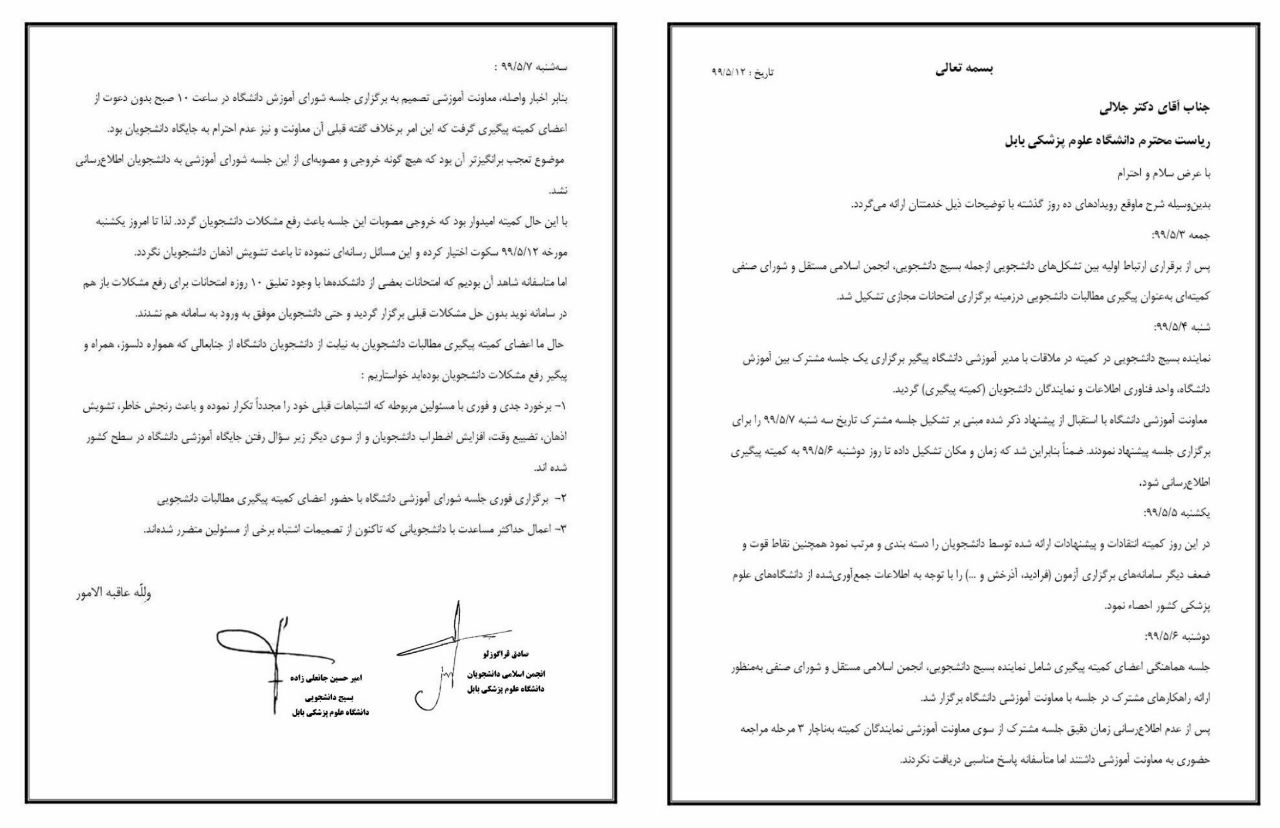 بسمه تعالی
تاریخ : ۹۹/۵/۱۲
جناب آقای دکتر جلالی
ریاست محترم دانشگاه علوم پزشکی بابل
با عرض سلام و احترام
بدین‌وسیله شرح ماوقع رویدادهای ده روز گذشته با توضیحات ذیل خدمتتان ارائه می‌گردد.
جمعه ۹۹/۵/۳:
پس از برقراری ارتباط اولیه بین تشکل‌های دانشجویی ازجمله بسیج دانشجویی، انجمن اسلامی مستقل و شورای صنفی
کمیته‌ای به‌عنوان پیگیری مطالبات دانشجویی درزمینه برگزاری امتحانات مجازی تشکیل شد.
شنبه ۹۹/۵/۴:
نماینده بسیج دانشجویی در کمیته در ملاقات با مدیر آموزشی دانشگاه پیگیر برگزاری یک جلسه مشترک بین آموزش
دانشگاه، واحد فناوری اطلاعات و نمایندگان دانشجویان (کمیته پیگیری) گردید.
معاونت آموزشی دانشگاه با استقبال از پیشنهاد ذکر شده مبنی بر تشکیل جلسه مشترک تاریخ سه شنبه ۹۹/۵/۷ را برای
برگزاری جلسه پیشنهاد نمودند. ضمناً بنابراین شد که زمان و مکان تشکیل داده تا روز دوشنبه ۹۹/۵/۶ به کمیته پیگیری
اطلاع‌رسانی شود.
یکشنبه ۹۹/۵/۵:
در این روز کمیته انتقادات و پیشنهادات ارائه شده توسط دانشجویان را دسته بندی و مرتب نمود همچنین نقاط قوت و
ضعف دیگر سامانه‌های برگزاری آزمون (فرادید، آذرخش و ...) را با توجه به اطلاعات جمع‌آوری‌شده از دانشگاه‌های علوم
پزشکی کشور احصاء نمود.
دوشنبه ۹۹/۵/۶:
جلسه هماهنگی اعضای کمیته پیگیری شامل نماینده بسیج دانشجویی، انجمن اسلامی مستقل و شورای صنفی به‌منظور
ارائه راهکارهای مشترک در جلسه با معاونت آموزشی دانشگاه برگزار شد.
پس از عدم اطلاع‌رسانی زمان دقیق جلسه مشترک از سوی معاونت آموزشی نمایندگان کمیته به‌ناچار ۳ مرحله مراجعه
حضوری به معاونت آموزشی داشتند اما متأسفانه پاسخ مناسبی دریافت نکردند.
سه‌شنبه ۹۹/۵/۷ :
بنابر اخبار واصله، معاونت آموزشی تصمیم به برگزاری جلسه شورای آموزش دانشگاه در ساعت ۱۰ صبح بدون دعوت از
اعضای کمیته پیگیری گرفت که این امر برخلاف گفته قبلی آن معاونت و نیز عدم احترام به جایگاه دانشجویان بود.
موضوع تعجب برانگیزتر آن بود که هیچ گونه خروجی و مصوبه‌ای از این جلسه شورای آموزشی به دانشجویان اطلاع‌رسانی
نشد.
با این حال کمیته امیدوار بود که خروجی مصوبات این جلسه باعث رفع مشکلات دانشجویان گردد. لذا تا امروز یکشنبه
مورخه ۹۹/۵/۱۲ سکوت اختیار کرده و این مسائل رسانه‌ای ننموده تا باعث تشویش اذهان دانشجویان نگردد.
اما متاسفانه شاهد آن بودیم که امتحانات بعضی از دانشکده‌ها با وجود تعلیق ۱۰ روزه امتحانات برای رفع مشکلات باز هم
در سامانه نوید بدون حل مشکلات قبلی برگزار گردید و حتی دانشجویان موفق به ورود به سامانه هم نشدند.
حال ما اعضای کمیته پیگیری مطالبات دانشجویان به نیابت از دانشجویان دانشگاه از جنابعالی که همواره دلسوز، همراه و
پیگیر رفع مشکلات دانشجویان بوده‌اید خواستاریم :
۱- برخورد جدی و فوری با مسئولین مربوطه که اشتباهات قبلی خود را مجدداً تکرار نموده و باعث رنجش خاطر، تشویش
اذهان، تضییع وقت، افزایش اضطراب دانشجویان و از سوی دیگر زیر سؤال رفتن جایگاه آموزشی دانشگاه در سطح کشور
شده اند.
۲- برگزاری فوری جلسه شورای آموزشی دانشگاه با حضور اعضای کمیته پیگیری مطالبات دانشجویی
۳- اعمال حداکثر مساعدت با دانشجویانی که تاکنون از تصمیمات اشتباه برخی از مسئولین متضرر شده‌اند.
وللّه عاقبه الامور
صادق قراگوزلو
انجمن اسلامی دانشجویان
دانشگاه علوم پزشکی بابل
امیر حسین جانعلی زاده
بسیج دانشجویی
دانشگاه علوم پزشکی بابل